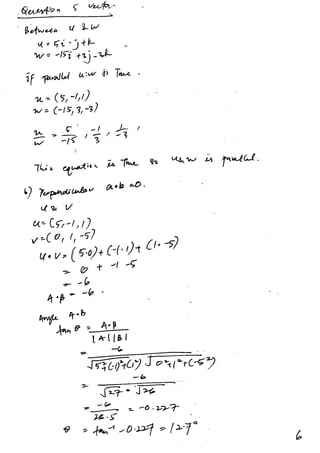 Question 5 vector.
Between u & w
u = 5i - j + k
w = -15i + 3j - 3k
if parallel u:w is True.
u = (5, -1, 1)
w = (-15, 3, -3)
u/w = 5/-15, -1/3, 1/-3
This equation is True so u & w is parallel.
b) Perpendicular a•b = 0.
u & v
u = (5, -1, 1)
v = (0, 1, -5)
u•v = (5·0) + (-1·1) + (1·-5)
= 0 + -1 -5
= -6
A•B = -6.
Angle A•b
tan θ = A•B / |A||B|
= -6 / √5²+(-1)²+(1²) √0²+1²+(-5²)
= -6 / √27 * √26
= -6 / 26.5 = -0.227
θ = tan⁻¹ -0.227 = 12.7°
6